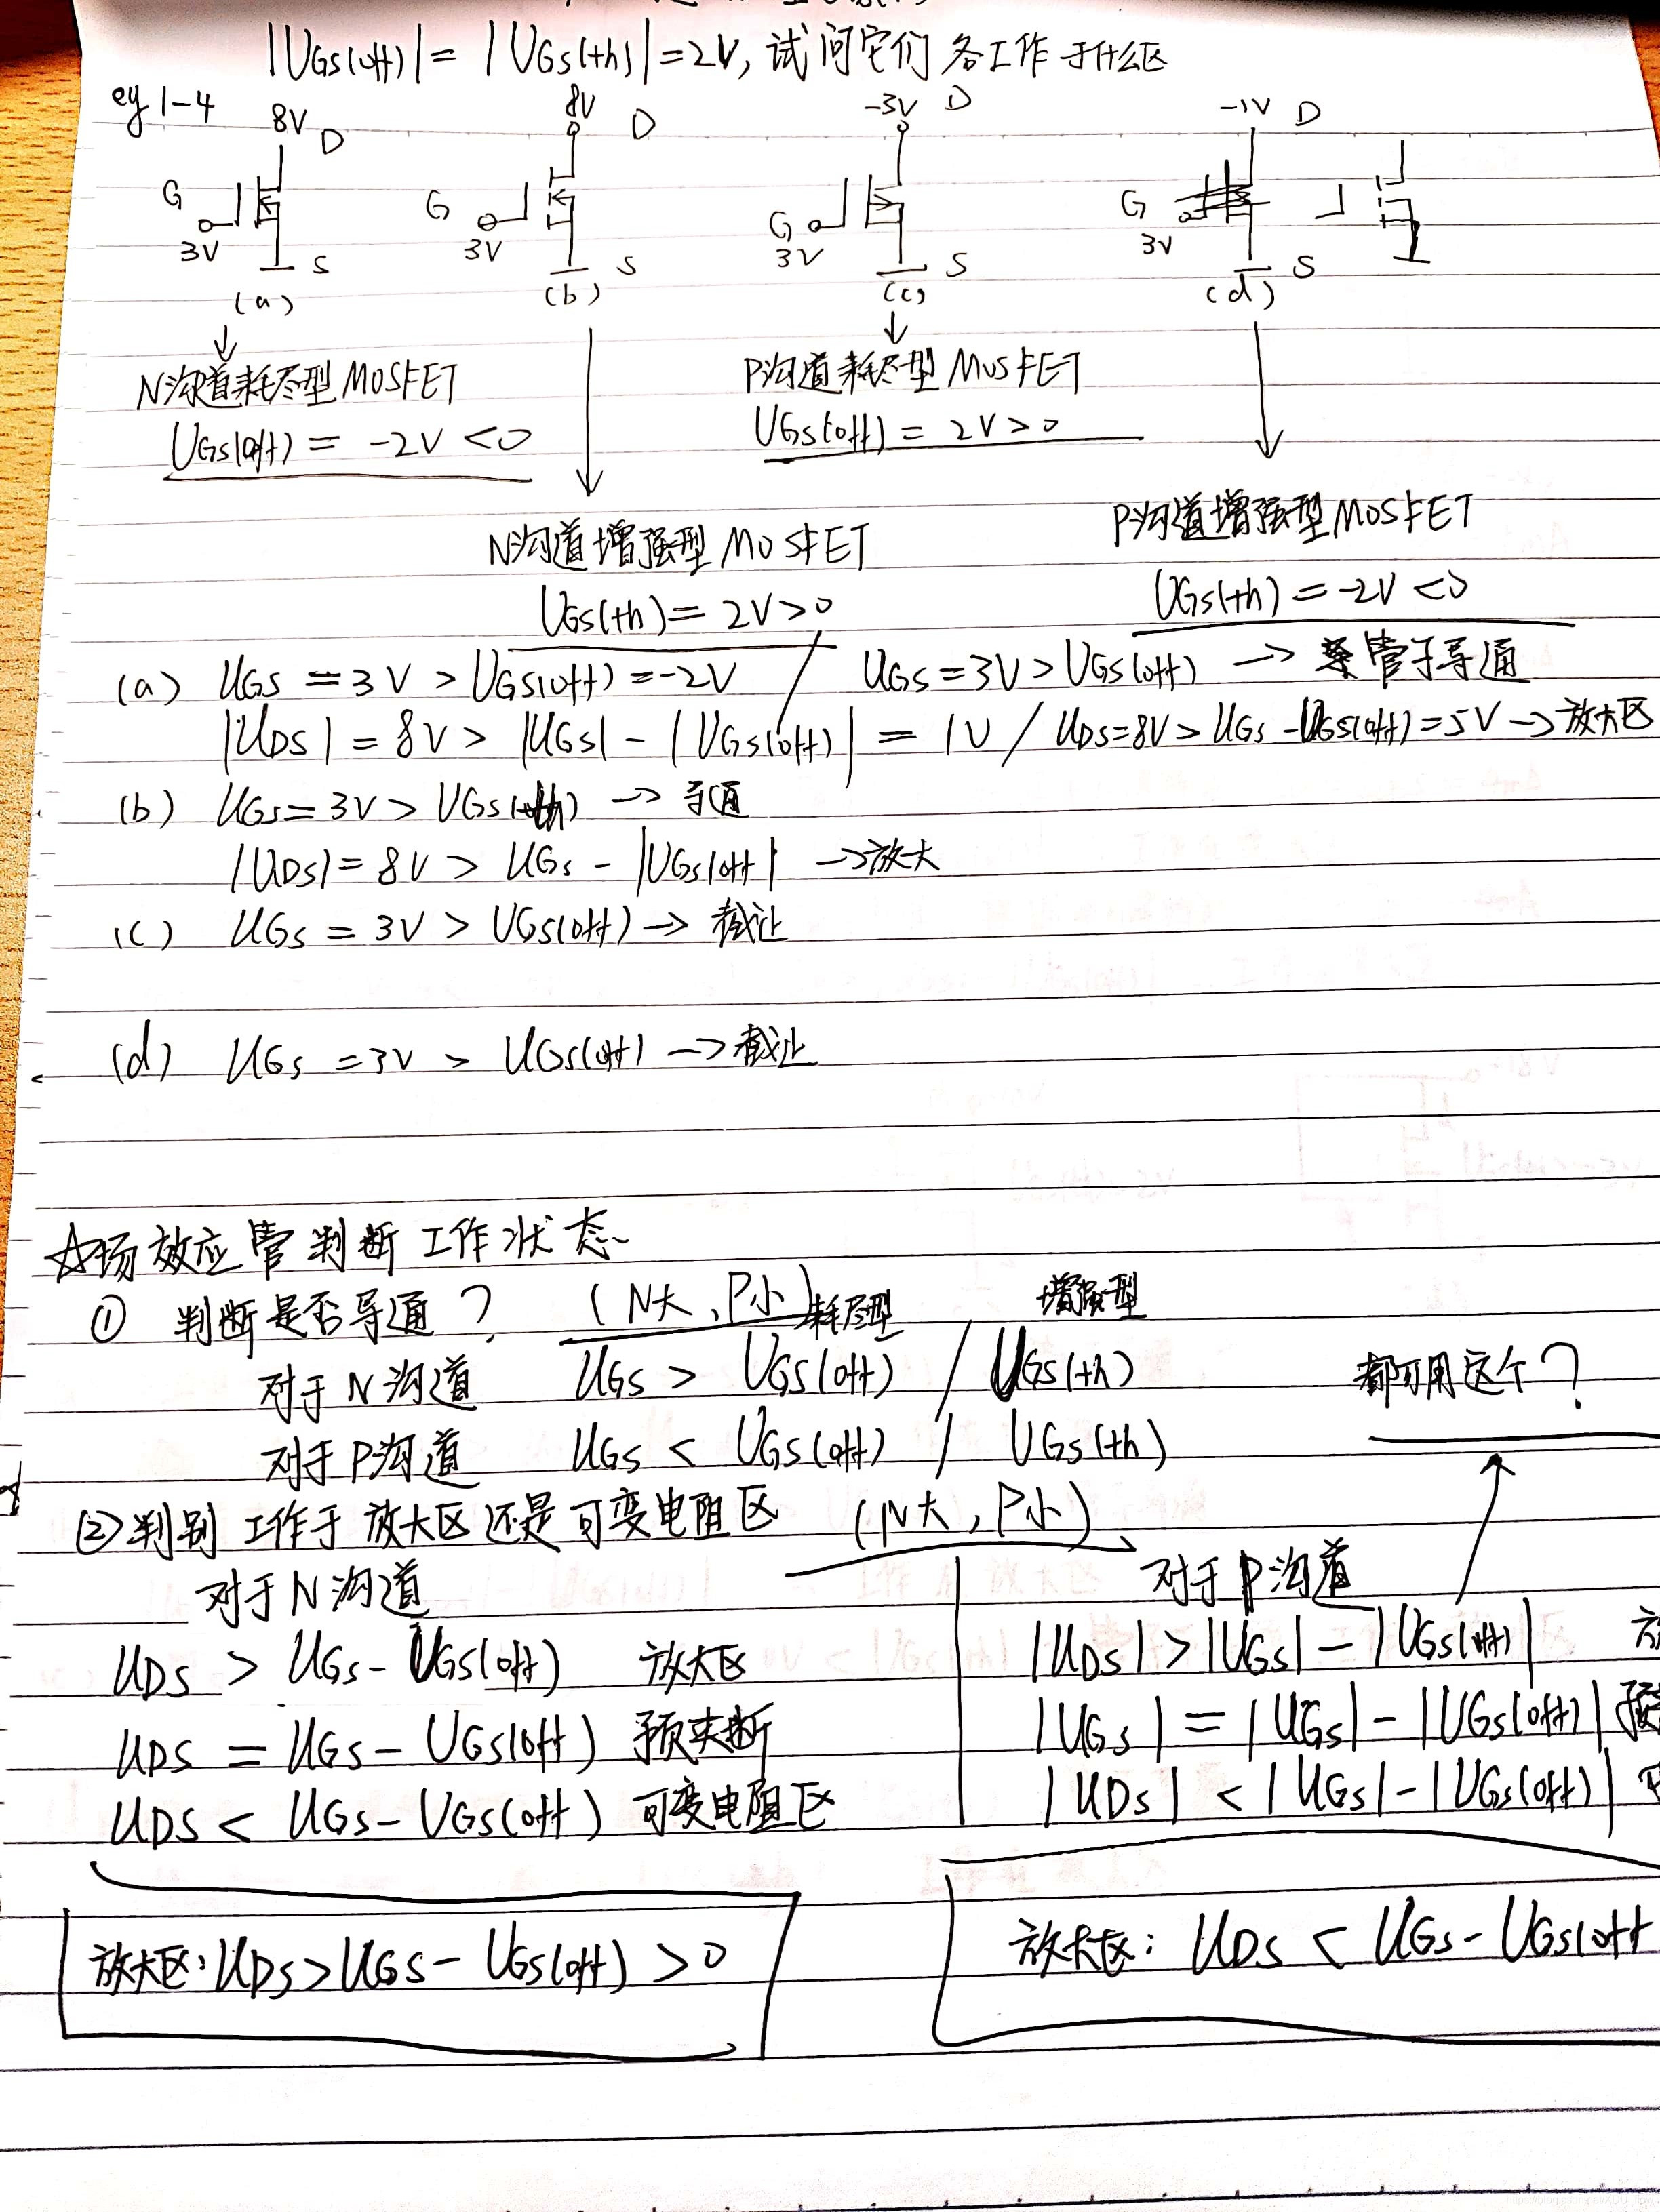 |UGS(off)| = |UGS(th)| = 2V, 试问它们各工作于什么区
eg 1-4 8V D 8V D -3V D -1V D
G 3V S G 3V S G 3V S G 3V S
(a) (b) (c) (d)
N沟道耗尽型MOSFET P沟道耗尽型MOSFET
UGS(off) = -2V < 0 UGS(off) = 2V > 0
N沟道增强型MOSFET P沟道增强型MOSFET
UGS(th) = 2V > 0 UGS(th) = -2V < 0
(a) UGS = 3V > UGS(off) = -2V / UGS = 3V > UGS(off) → 管子导通
|UDS| = 8V > |UGS| - |UGS(off)| = 1V / UDS = 8V > UGS - UGS(off) = 5V → 放大区
(b) UGS = 3V > UGS(th) → 导通
|UDS| = 8V > UGS - |UGS(off)| → 放大
(c) UGS = 3V > UGS(off) → 截止
(d) UGS = 3V > UGS(off) → 截止
☆场效应管判断工作状态
① 判断是否导通? (N大, P小) 耗尽型 增强型
对于N沟道 UGS > UGS(off) / UGS(th) 都可用这个?
对于P沟道 UGS < UGS(off) / UGS(th)
② 判别工作于放大区还是可变电阻区 (N大, P小)
对于N沟道 对于P沟道
UDS > UGS - UGS(off) 放大区 |UDS| > |UGS| - |UGS(off)|
UDS = UGS - UGS(off) 预夹断 |UGS| = |UGS| - |UGS(off)| 预
UDS < UGS - UGS(off) 可变电阻区 |UDS| < |UGS| - |UGS(off)|
放大区: UDS > UGS - UGS(off) > 0 放大区: UDS < UGS - UGS(off